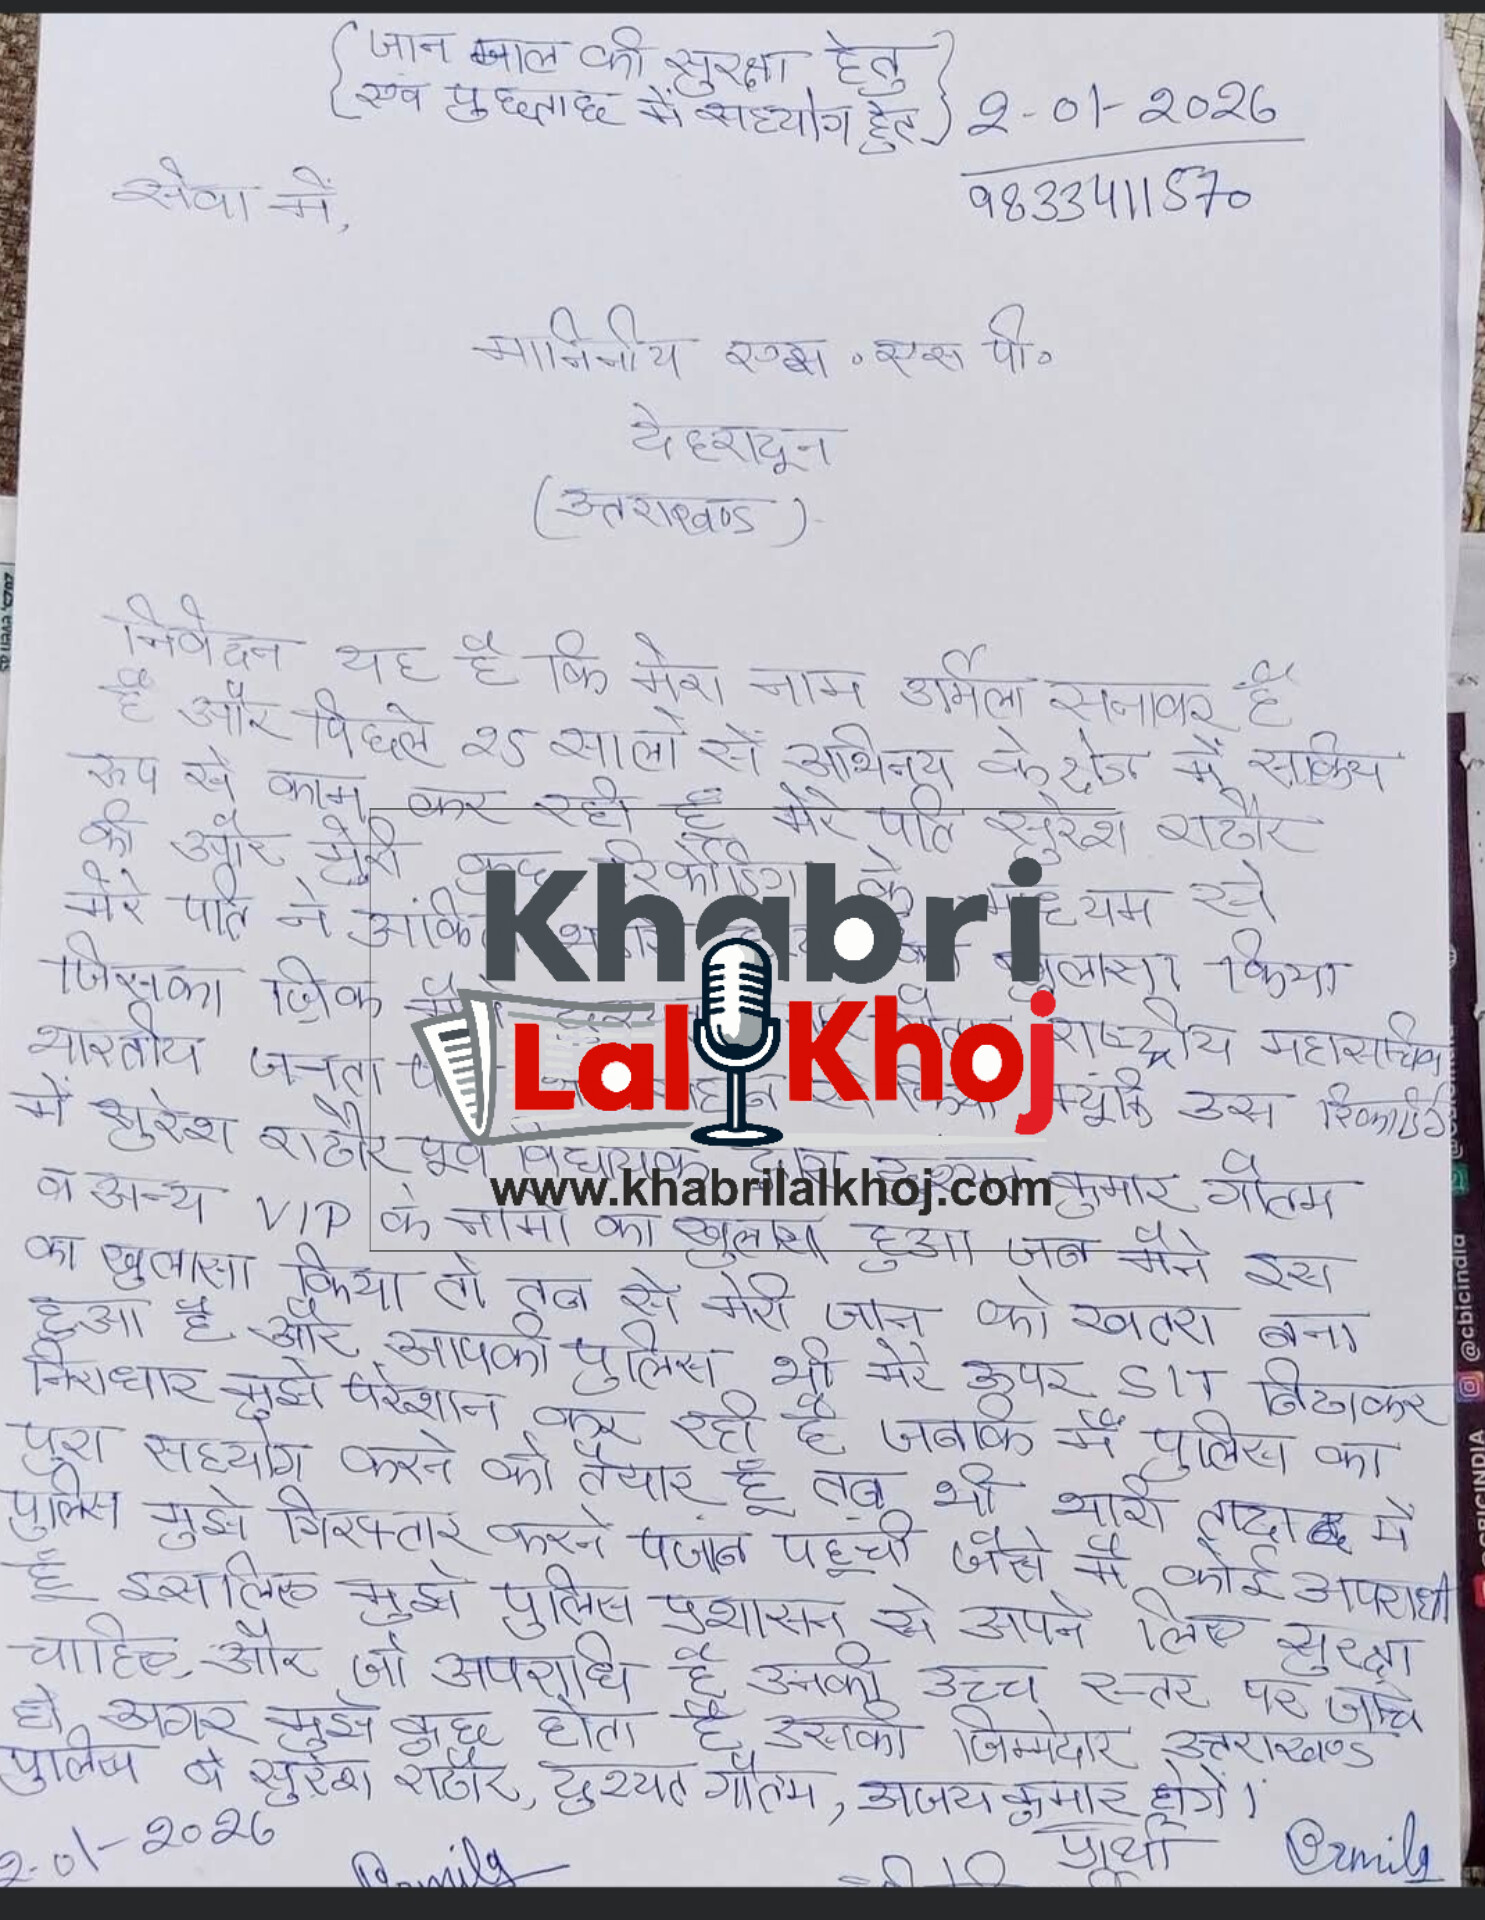 {जान माल की सुरक्षा हेतु}
{एवं पुछताछ में सहयोग हेतु}
2-01-2026
9833411570
सेवा में,
माननीय एस॰एस पी॰
देहरादून
(उत्तराखण्ड)
निवेदन यह है कि मेरा नाम उर्मिला सनावर है
है और पिछले 25 सालों से अभिनय के क्षेत्र में सक्रिय
रूप से काम कर रही हूँ मेरे पति सुरेश राठौर
की और मेरी कुछ रिकॉर्डिंग के माध्यम से
मेरे पति ने अंकिता खुलासा किया
जिसका ज़िक्र मैंने राष्ट्रीय महासचिव
भारतीय जनता क्यूंकि उस रिकार्डिंग
में सुरेश राठौर पूर्व विधायक द्वारा दुष्यंत कुमार गौतम
व अन्य VIP के नामों का खुलासा हुआ जब मैंने इस
का खुलासा किया तो तब से मेरी जान को खतरा बना
हुआ है और आपकी पुलिस भी मेरे ऊपर SIT बिठाकर
निराधार मुझे परेशान कर रही है जबकि मैं पुलिस का
पुरा सहयोग करने को तैयार हूँ तब भी भारी तादाद में
पुलिस मुझे गिरफ्तार करने पंजाब पहूंची जैसे मैं कोई अपराधी
हूँ इसलिए मुझे पुलिस प्रशासन से अपने लिए सुरक्षा
चाहिए और जो अपराधि है उनकी उच्च स्तर पर जांच
हो अगर मुझे कुछ होता है उसका जिम्मेदार उत्तराखण्ड
पुलिस व सुरेश राठौर, दुश्यत गौतम, अजय कुमार होगें।
2-01-2026
प्रार्थी
Urmila
Urmila
Khabri
Lal Khoj
www.khabrilalkhoj.com
@cbicindia